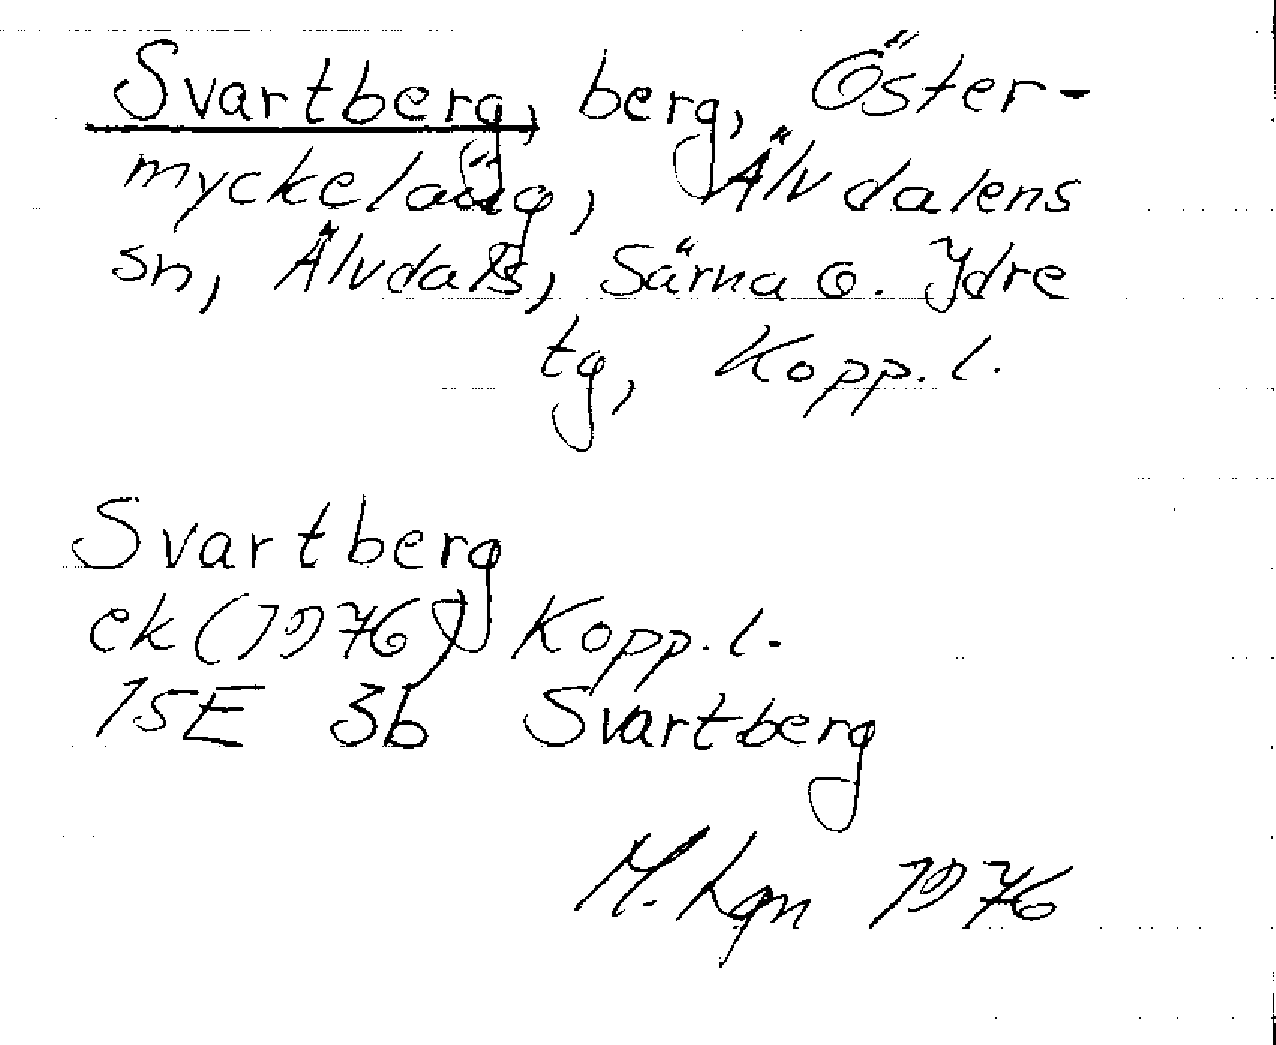 Svartberg, berg, Öster-
myckeläng, Älvdalens
sn, Älvdals, Särna o. Idre
tg, Kopp. l.
Svartberg
ek (1976) Kopp. l.
15E 3b Svartberg
M. Lgn 1976